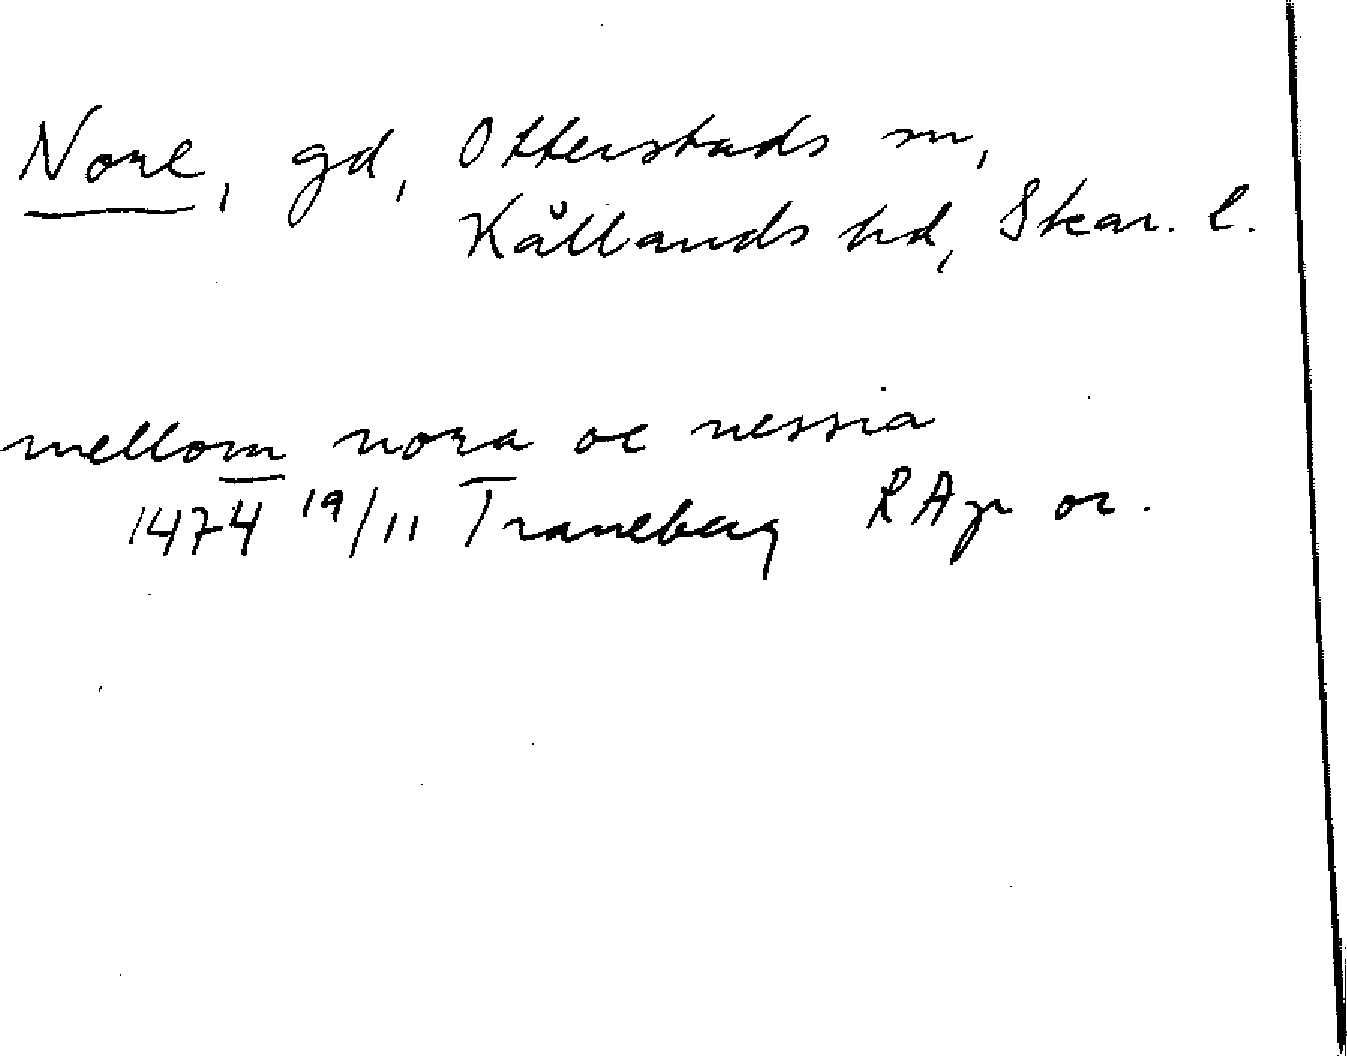 Nore, gd, Otterstads sn,
Kållands hd, Skar. l.
mellom nora oc nessia
1474 19/11 Traneberg RAp or.